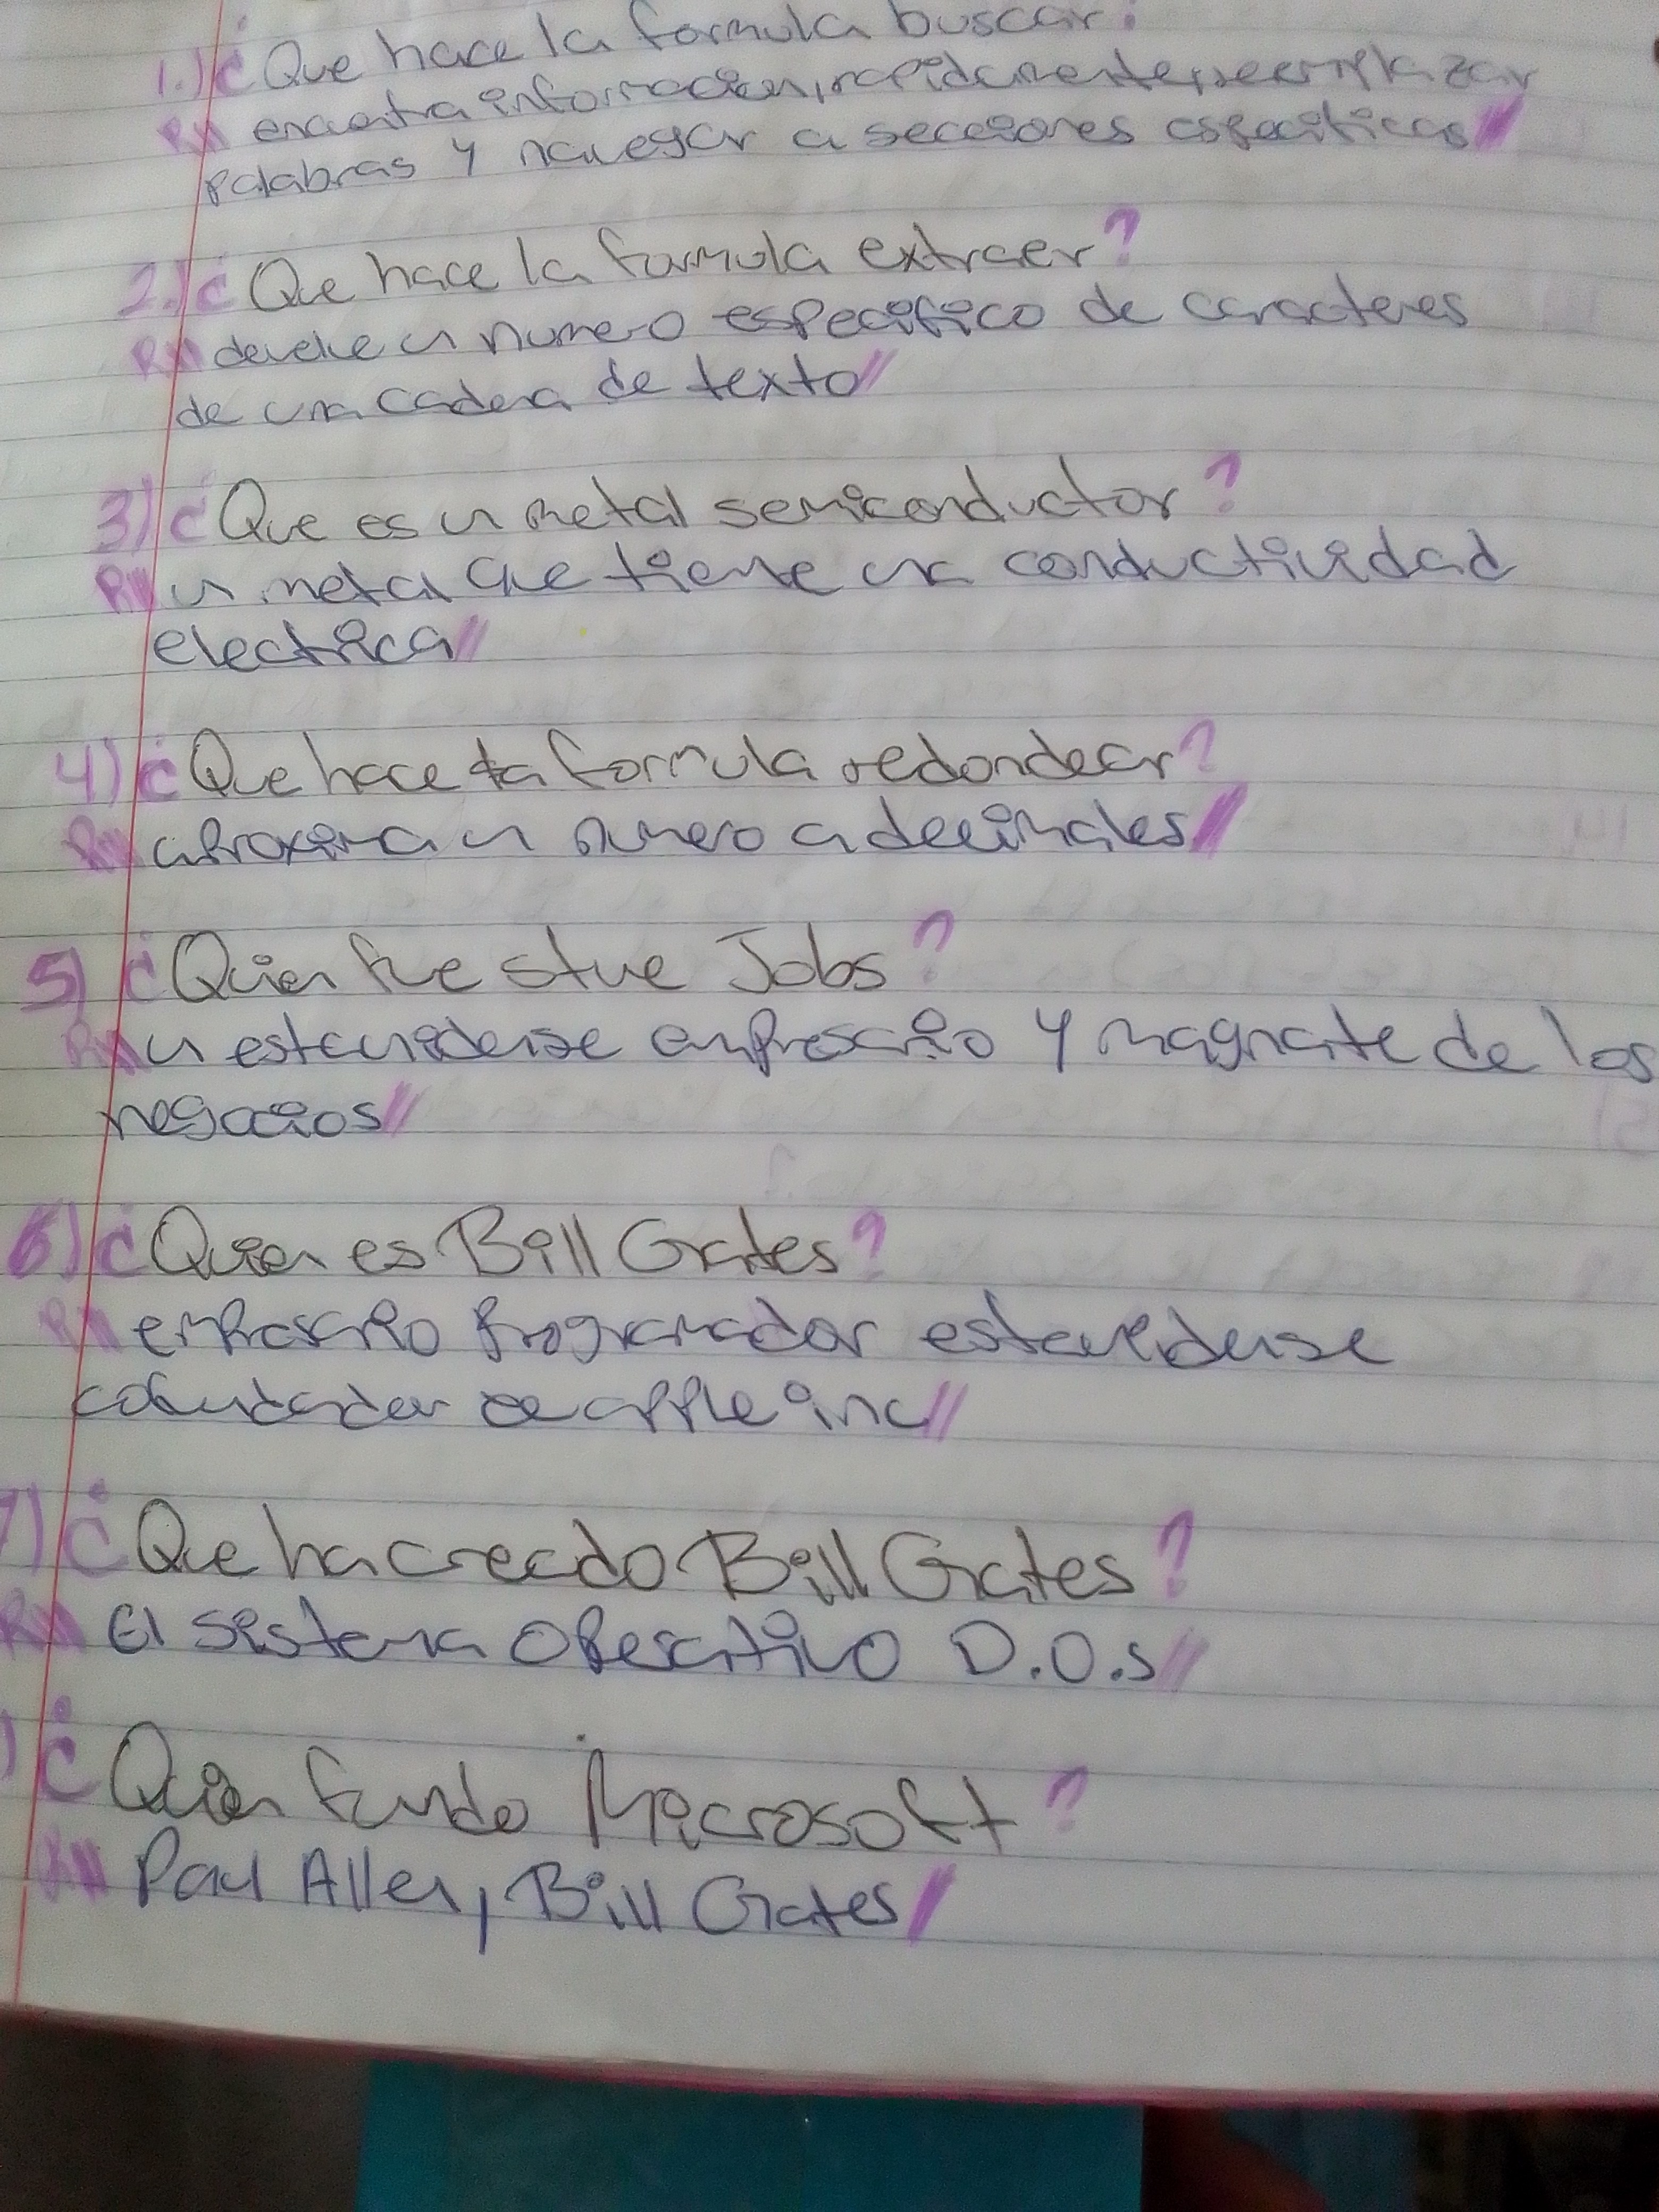 1.) ¿Que hace la formula buscar?
R// encuentra informacion, rapidamente, reemplazar
palabras y navegar a secciones especificas//
2.) ¿Que hace la formula extraer?
R// devuelve un numero especifico de caracteres
de una cadena de texto//
3) ¿Que es un metal semiconductor?
R// un metal que tiene una conductividad
electrica//
4) ¿Que hace la formula redondear?
R// aproxima un numero a decimales//
5) ¿Quien fue stve Jobs?
R// un estaunidense empresario y magnate de los
negocios//
6) ¿Quien es Bill Gates?
R// empresario programador estaunidense
cofundador de apple inc//
7) ¿Que ha creado Bill Gates?
R// El sistema operativo D.O.s//
) ¿Quien fundo Microsoft?
R// Paul Allen, Bill Gates//